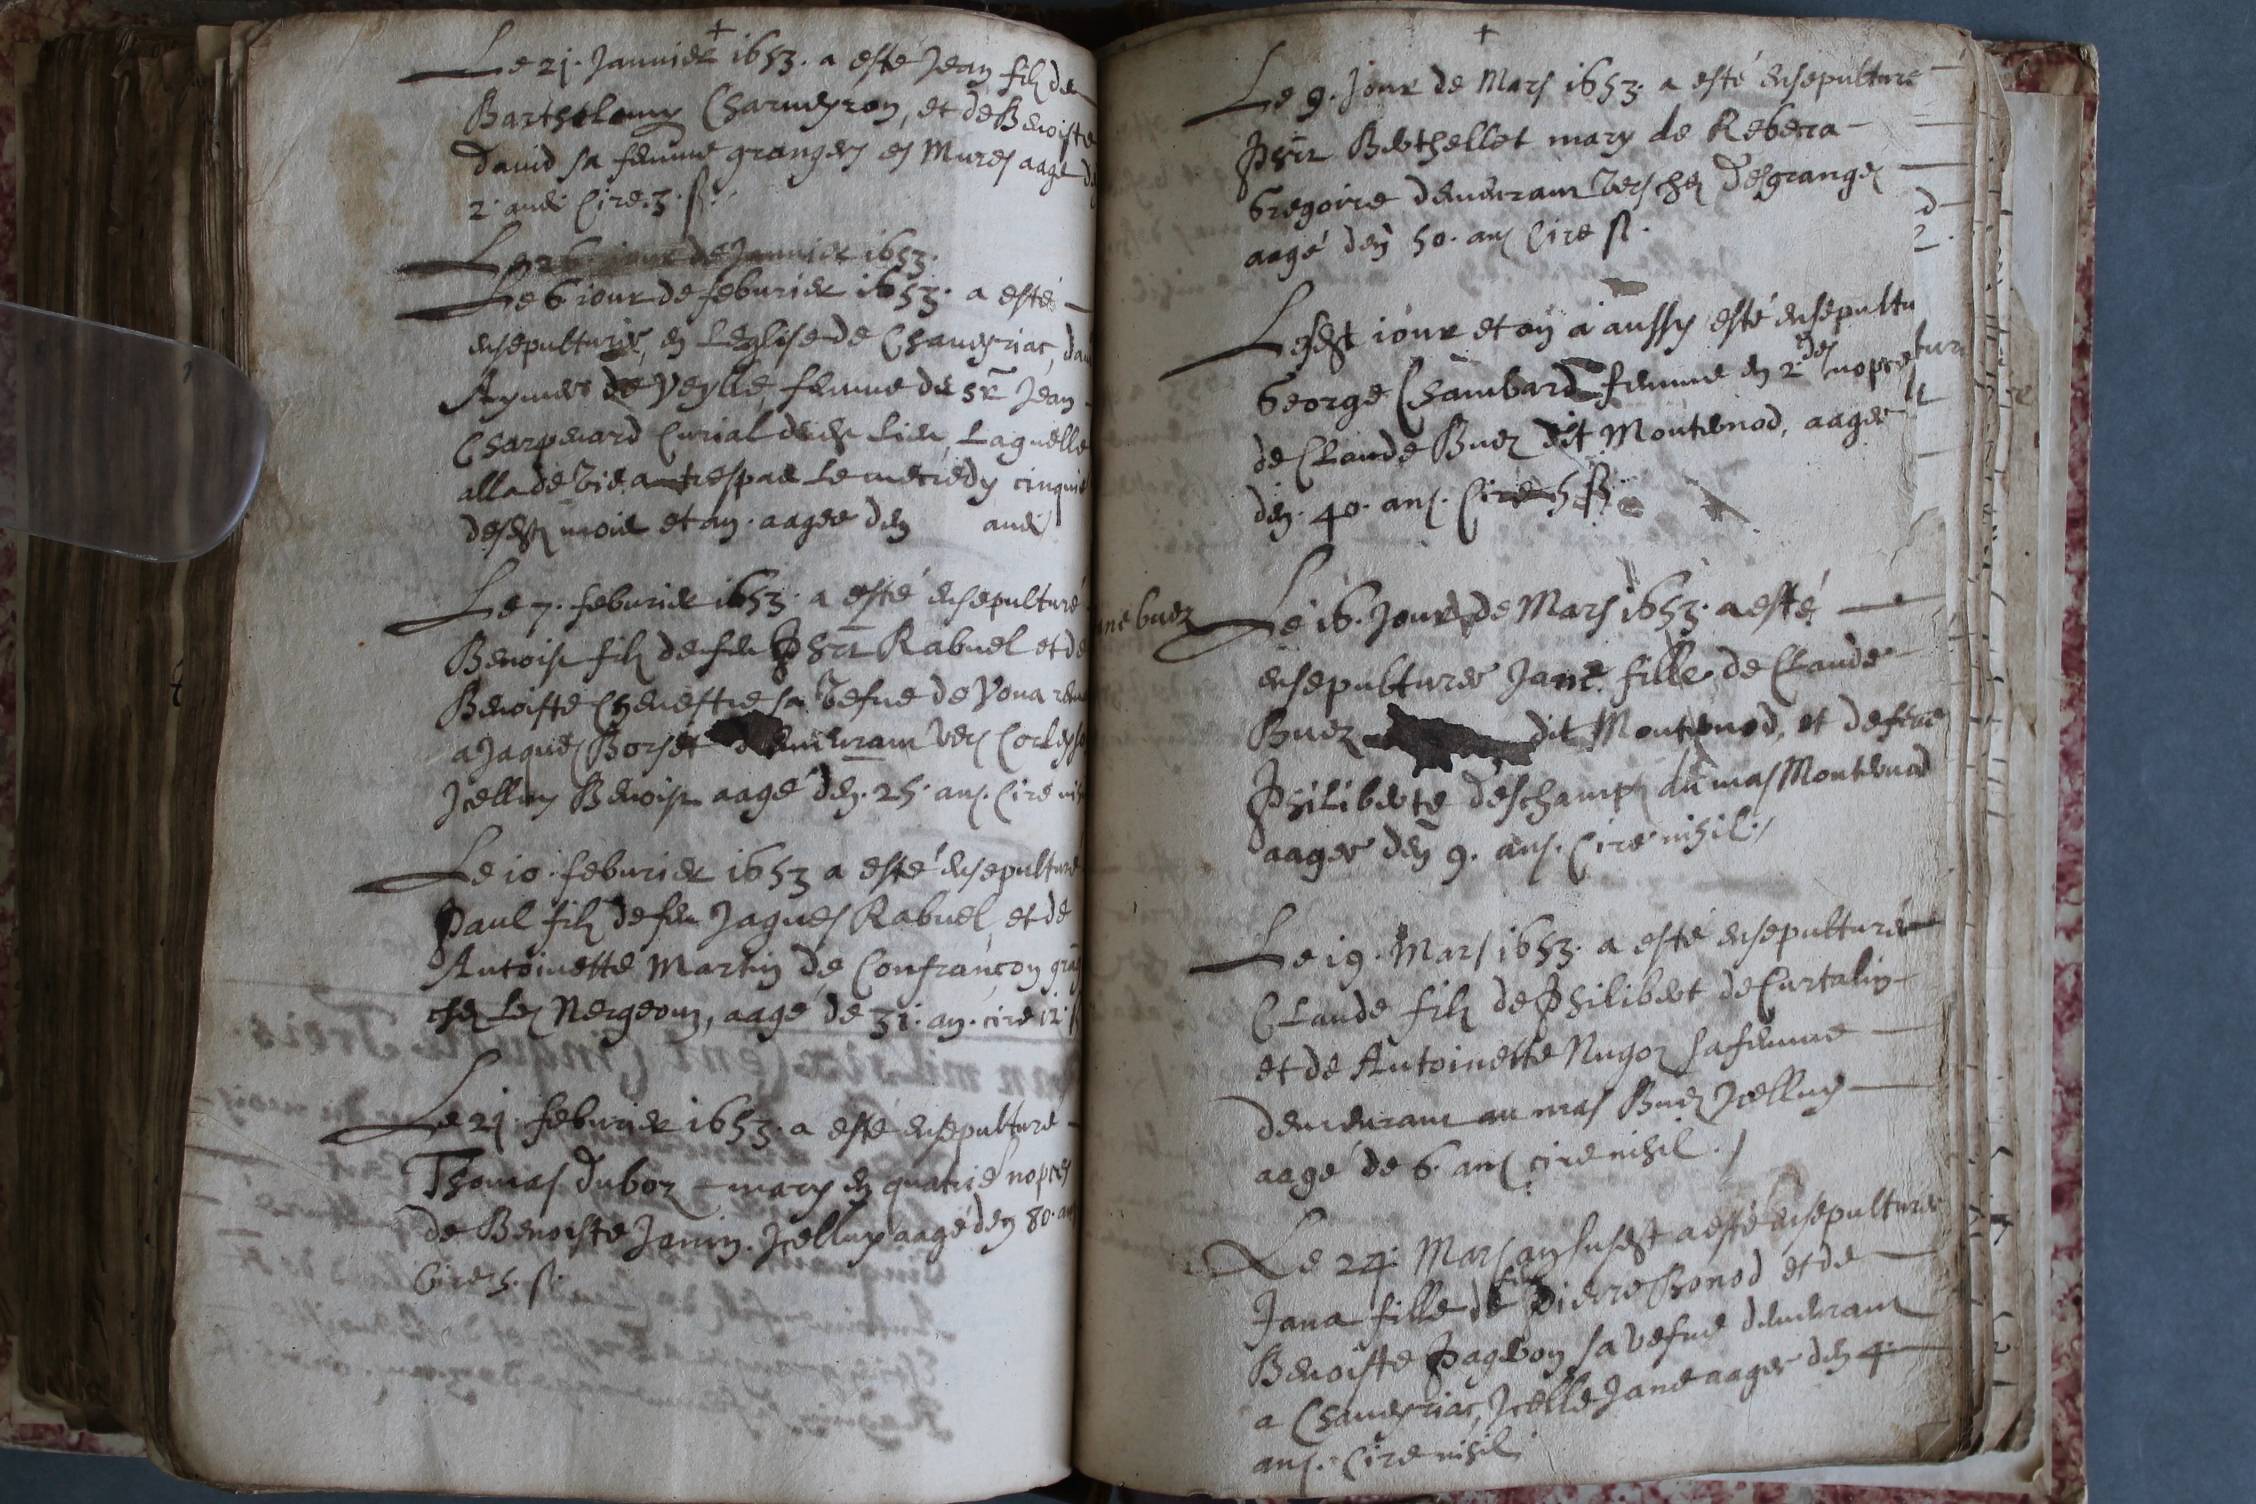 +
Le 21. Januier 1653. a esté Jean filz de
Bartholomy Charueyron, et de Benoiste
David sa femme grangers es Mures aagé de
2. ans Cire. 3. ß.
Le 26. jour de Januier 1653.
Le 6 iour de feburier 1653. a esté
ensepulturée, en L'eglise de Chaueyriac, da
Aymée de Veylle, femme du Sr. Jean
Charpenard Curial dudit Lieu, Laquelle
alla de vie a trespas Le mecredy cinquie
de cest mois et an. aagee den      ans
Le 7. feburier 1653. a esté ensepulturé
Benoist filz de feu Phil Rabuel et de
Benoiste Cheuestre sa vefue de Vona
a Jaques Borset demeurant vers Corles
Jcelluy Benoist aagé den. 25. ans. Cire ni
Le 10. feburier 1653 a esté ensepulturé
Paul filz de feu Jaques Rabuel, et de
Antoinette Martin de Confrançon gra
chez Les Nergeoun, aagé de 31. an. cire 12. ß
Le 21 feburier 1653. a esté ensepulturé
Thomas Duboz mary en quatrie nopces
de Benoiste Janin. Jcelluy aagé den 80. an
Cire 5. ß.
+
Le 9. Jour de Mars 1653. a esté ensepulturé
Phil Berthellet mary de Rebecca
Gregoire demeurant vers chez Desgranges
aagé den 50. ans Cire ß.
Le dit iour et an a aussy esté ensepultu
George Chambard femme en 2.des nopces
de Claude Buez dit Monternod, aagee
den. 40. ans. Cire 5 ß
ane buez
Le 16. Jour de Mars 1653. a esté
ensepulturée Jane fille de Claude
Buez dit Monternod, et de feue
Philiberte deschamps du mas Monternod
aagee den 9. ans. Cire nihil.
Le 19. Mars 1653. a esté ensepulturé
Claude filz de Philibert de Curtalin
et de Antoinette Nugoz sa femme
demeurant au mas Buez Jcelluy
aagé de 6. ans cire nihil.
Le 24. Mars an susdit a esté ensepulturée
Jana fille de feu Pierre Bonod et de
Benoiste Pageon sa vefue demeurant
a Chaueyriac, Jcelle Jane aagee den 4
ans. Cire nihil